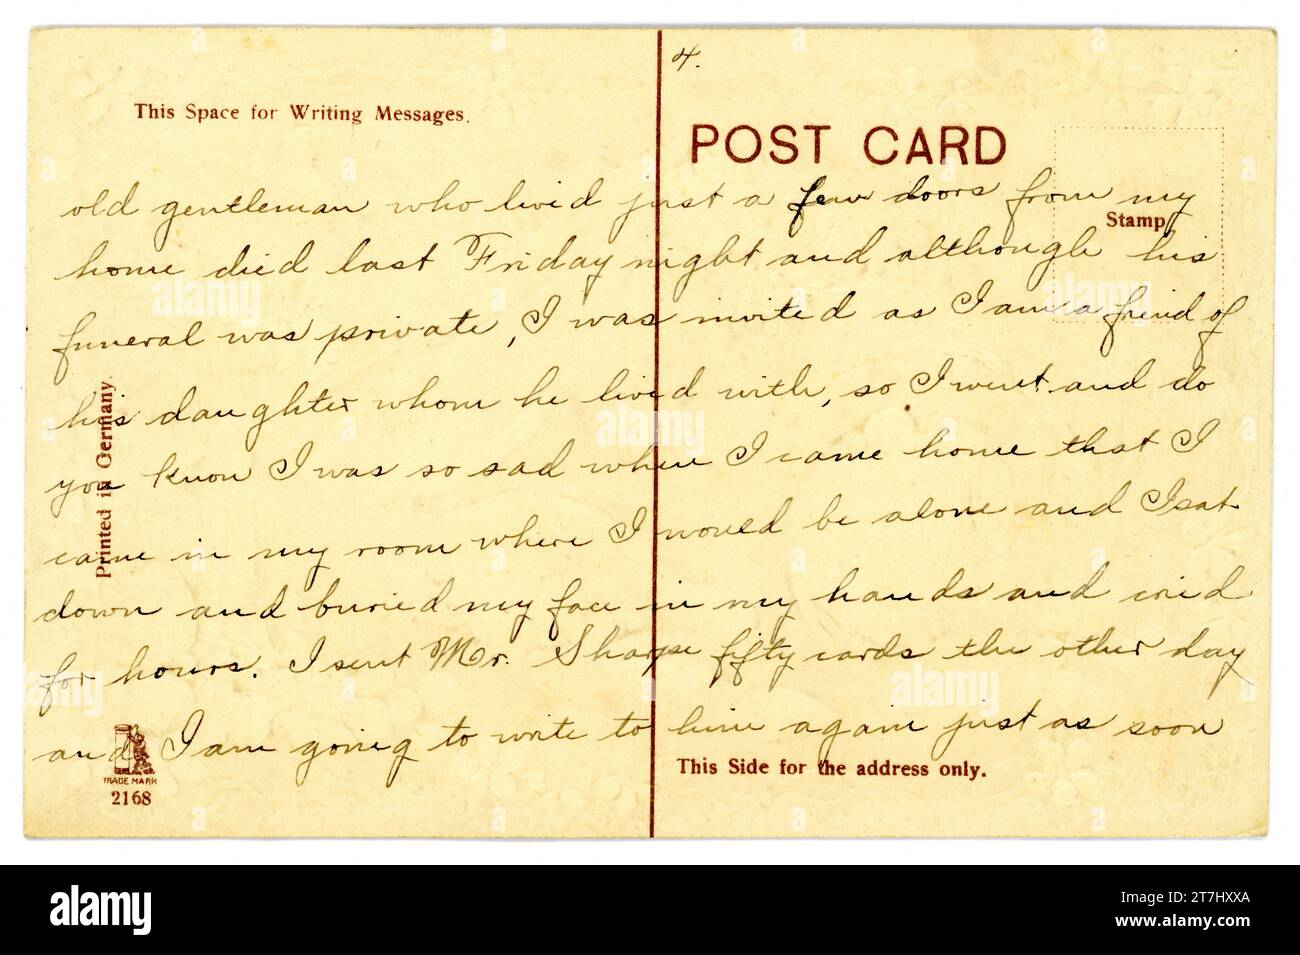 4.
This Space for Writing Messages.
POST CARD
Stamp
old gentleman who lived just a few doors from my
home died last Friday night and although his
funeral was private, I was invited as I am a friend of
his daughter whom he lived with, so I went and do
you know I was so sad when I came home that I
came in my room where I would be alone and I sat
down and buried my face in my hands and cried
for hours. I sent Mr. Sharpe fifty cards the other day
and I am going to write to him again just as soon
Printed in Germany
TRADE MARK
2168
This Side for the address only.
alamy
Image ID: 2T7HJXXA
www.alamy.com